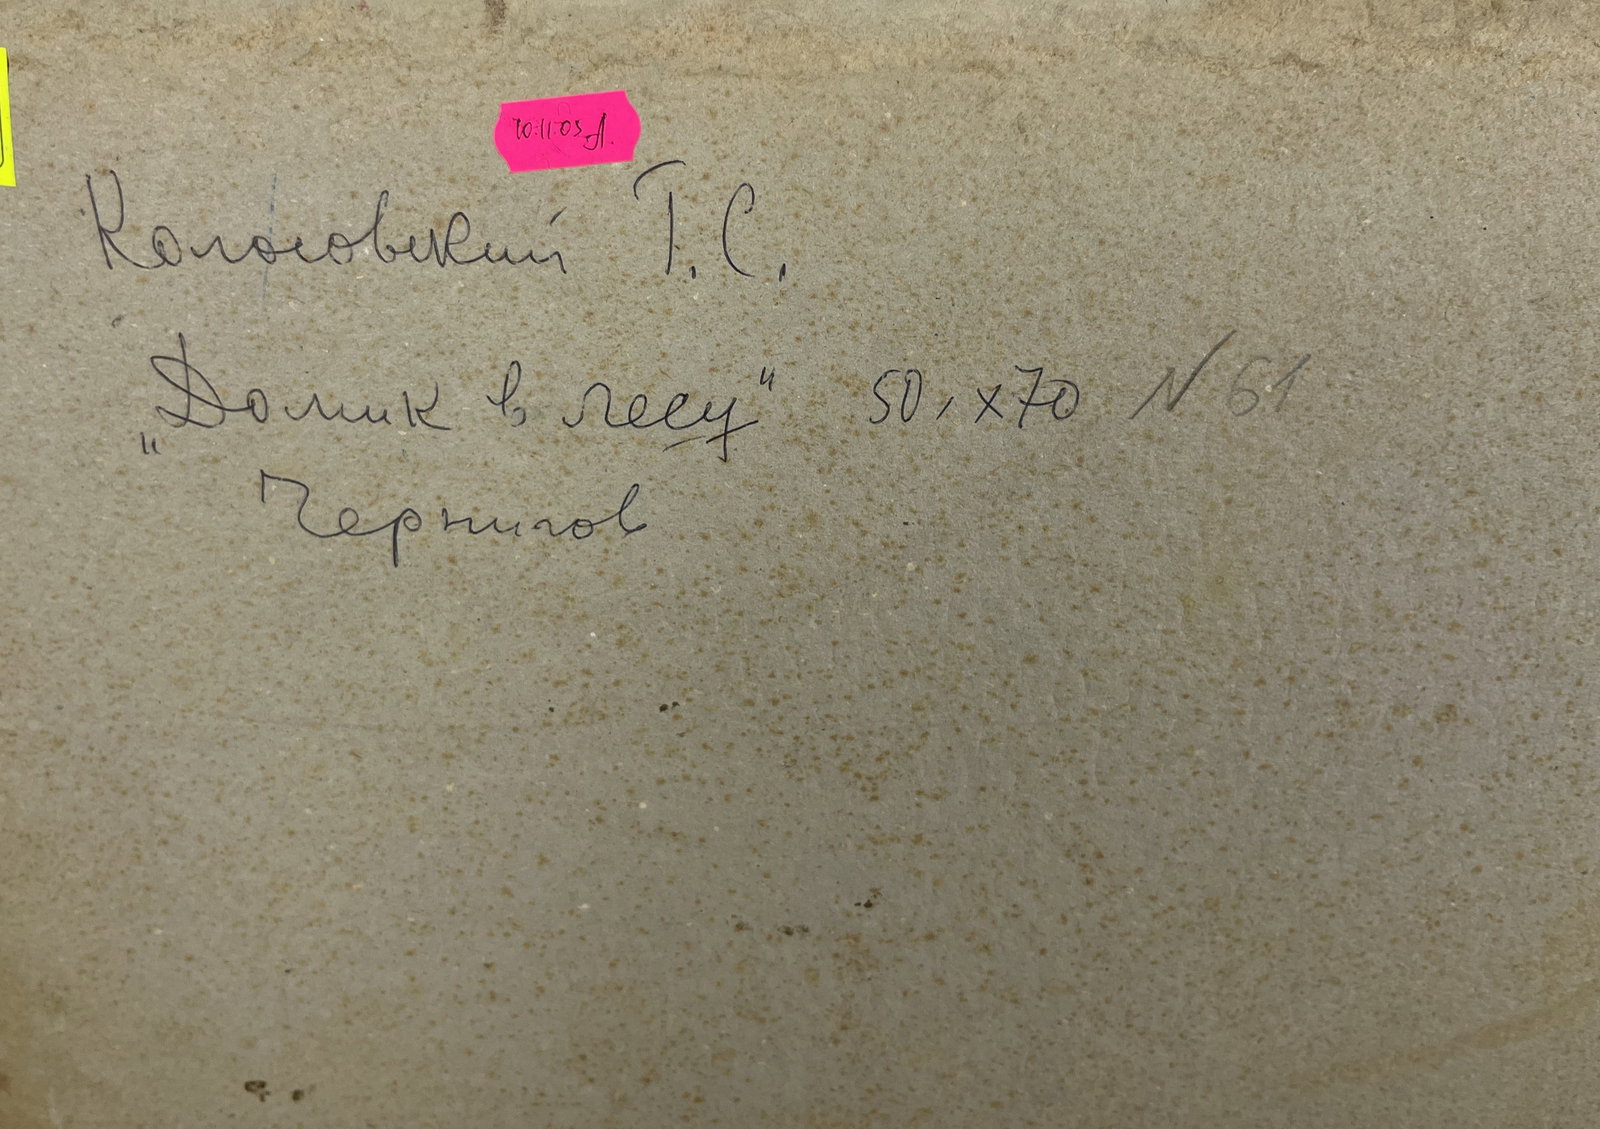 Колосовский Г. С.
„Домик в лесу“ 50,х70 N 61
Чернигов